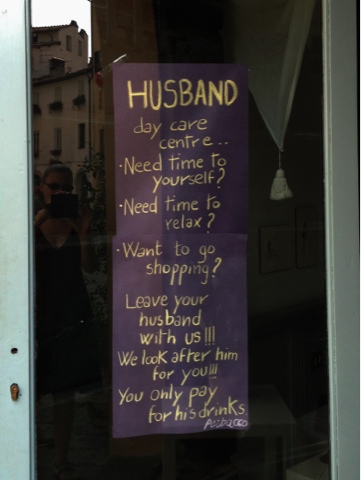 HUSBAND
day care
centre..
·Need time to
yourself?
·Need time to
relax?
·Want to go
shopping?
Leave your
husband
with us!!!
We look after him
for you!!!
You only pay
for his drinks